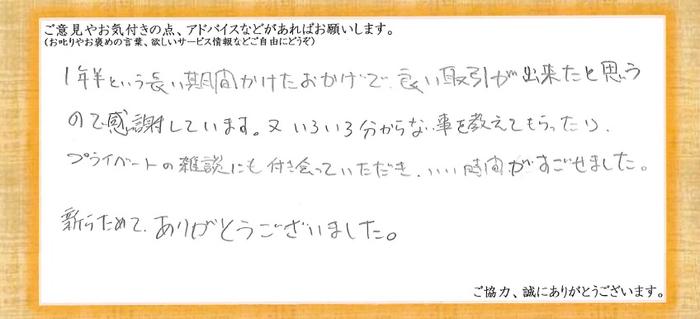 ご意見やお気付きの点、アドバイスなどがあればお願いします。
(お叱りやお褒めの言葉、欲しいサービス情報などご自由にどうぞ)
1年半という長い期間かけたおかげで、良い取引が出来たと思う
ので感謝しています。又いろいろ分からない事を教えてもらったり、
プライベートの雑談にも付き合っていただき、いい時間がすごせました。
新らためて、ありがとうございました。
ご協力、誠にありがとうございます。